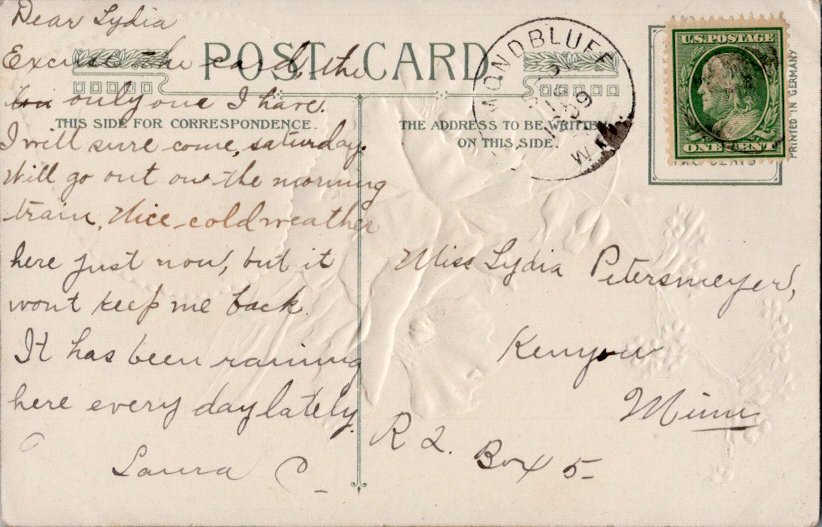 Dear Lydia
Excuse the card, the
only one I have.
I will sure come, saturday.
Will go out on the morning
train. Nice cold weather
here just now, but it
wont keep me back.
It has been raining
here every day lately.
Laura C
POST CARD
THIS SIDE FOR CORRESPONDENCE.
THE ADDRESS TO BE WRITTEN
ON THIS SIDE.
MONDBLUFF
WIS
U.S. POSTAGE
ONE CENT
PRINTED IN GERMANY
Miss Lydia Petersmeyer,
Kenyon
Minn
R 2. Box 5